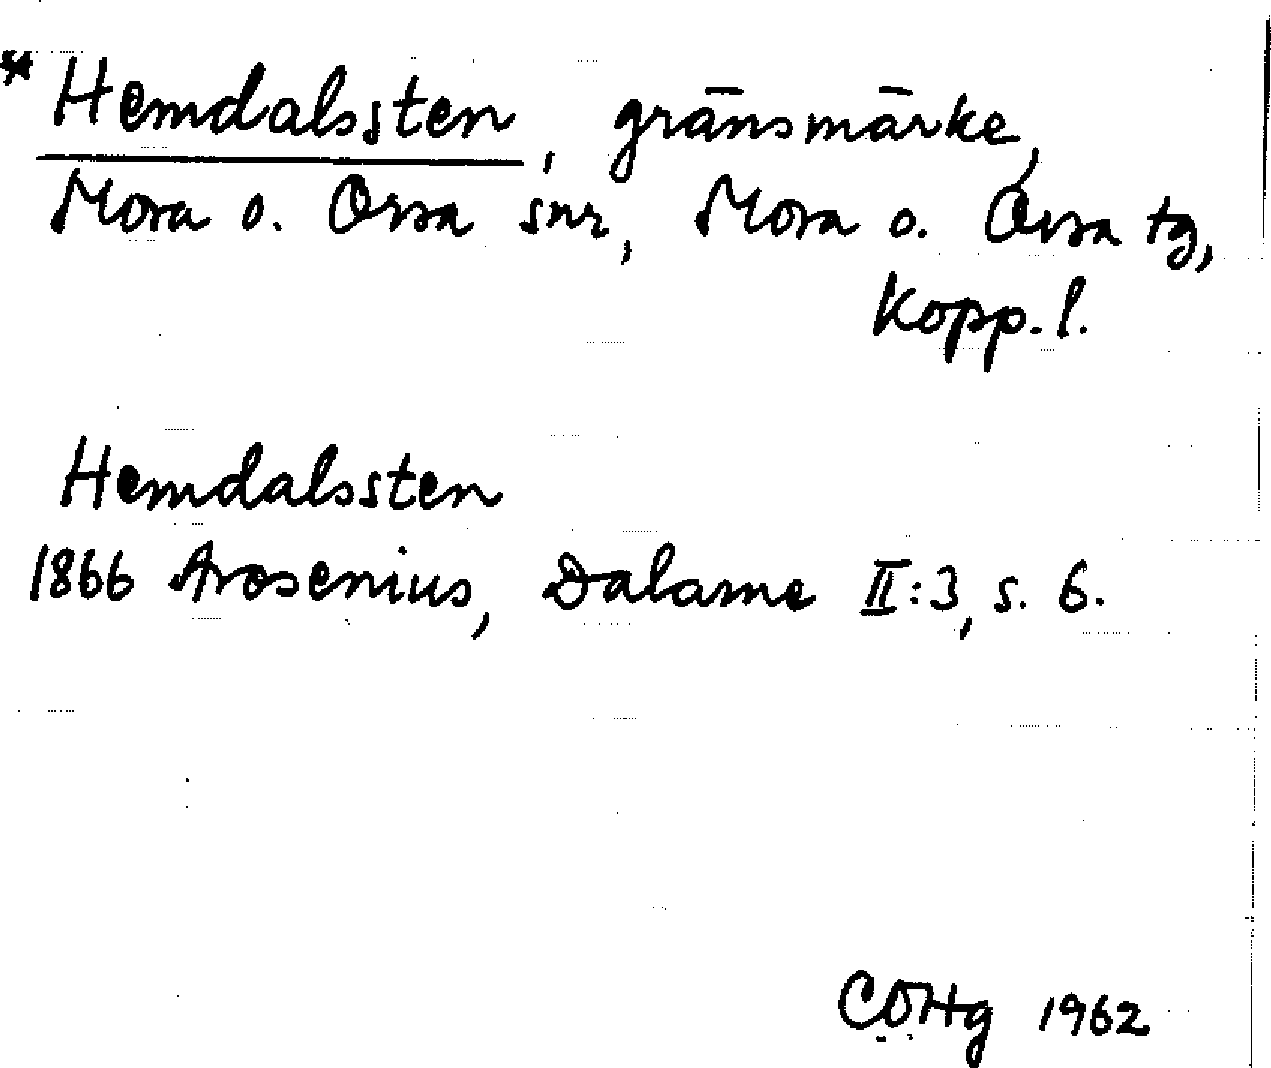 * Hemdalssten, gränsmärke,
Mora o. Orsa snr, Mora o. Orsa tg,
Kopp. l.
Hemdalssten
1866 Arosenius, Dalarne II:3, s. 6.
COHg 1962